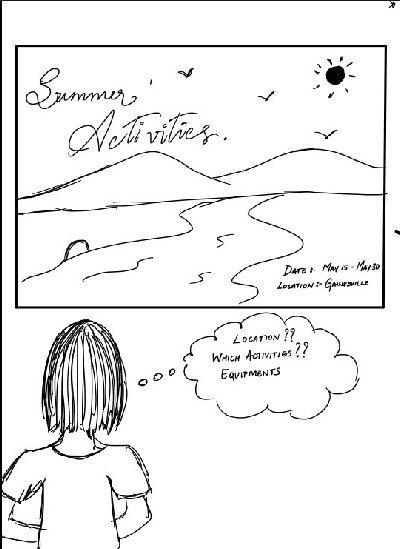 Summer
Activities.
DATE :- MAY 15 - MAY 30
LOCATION :- GAINESVILLE
LOCATION ??
WHICH ACTIVITIES ??
EQUIPMENTS